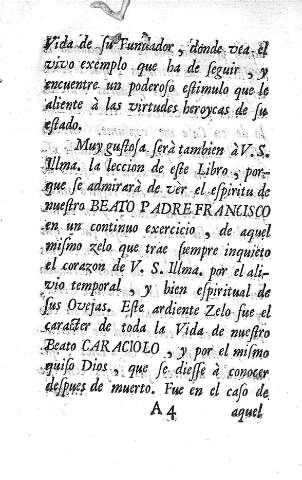 Vida de su Fundador, donde vea el
vivo exemplo que ha de seguir, y
encuentre un poderoso estimulo que le
aliente à las virtudes heroycas de su
estado.
Muy gustosa serà tambien à V. S.
Illma. la leccion de este Libro, por-
que se admirarà de ver el espiritu de
nuestro BEATO PADRE FRANCISCO
en un continuo exercicio, de aquel
mismo zelo que trae siempre inquieto
el corazon de V. S. Illma. por el ali-
vio temporal, y bien espiritual de
sus Ovejas. Este ardiente Zelo fue el
caracter de toda la Vida de nuestro
Beato CARACIOLO, y por el mismo
quiso Dios, que se diesse à conocer
despues de muerto. Fue en el caso de
A 4 aquel